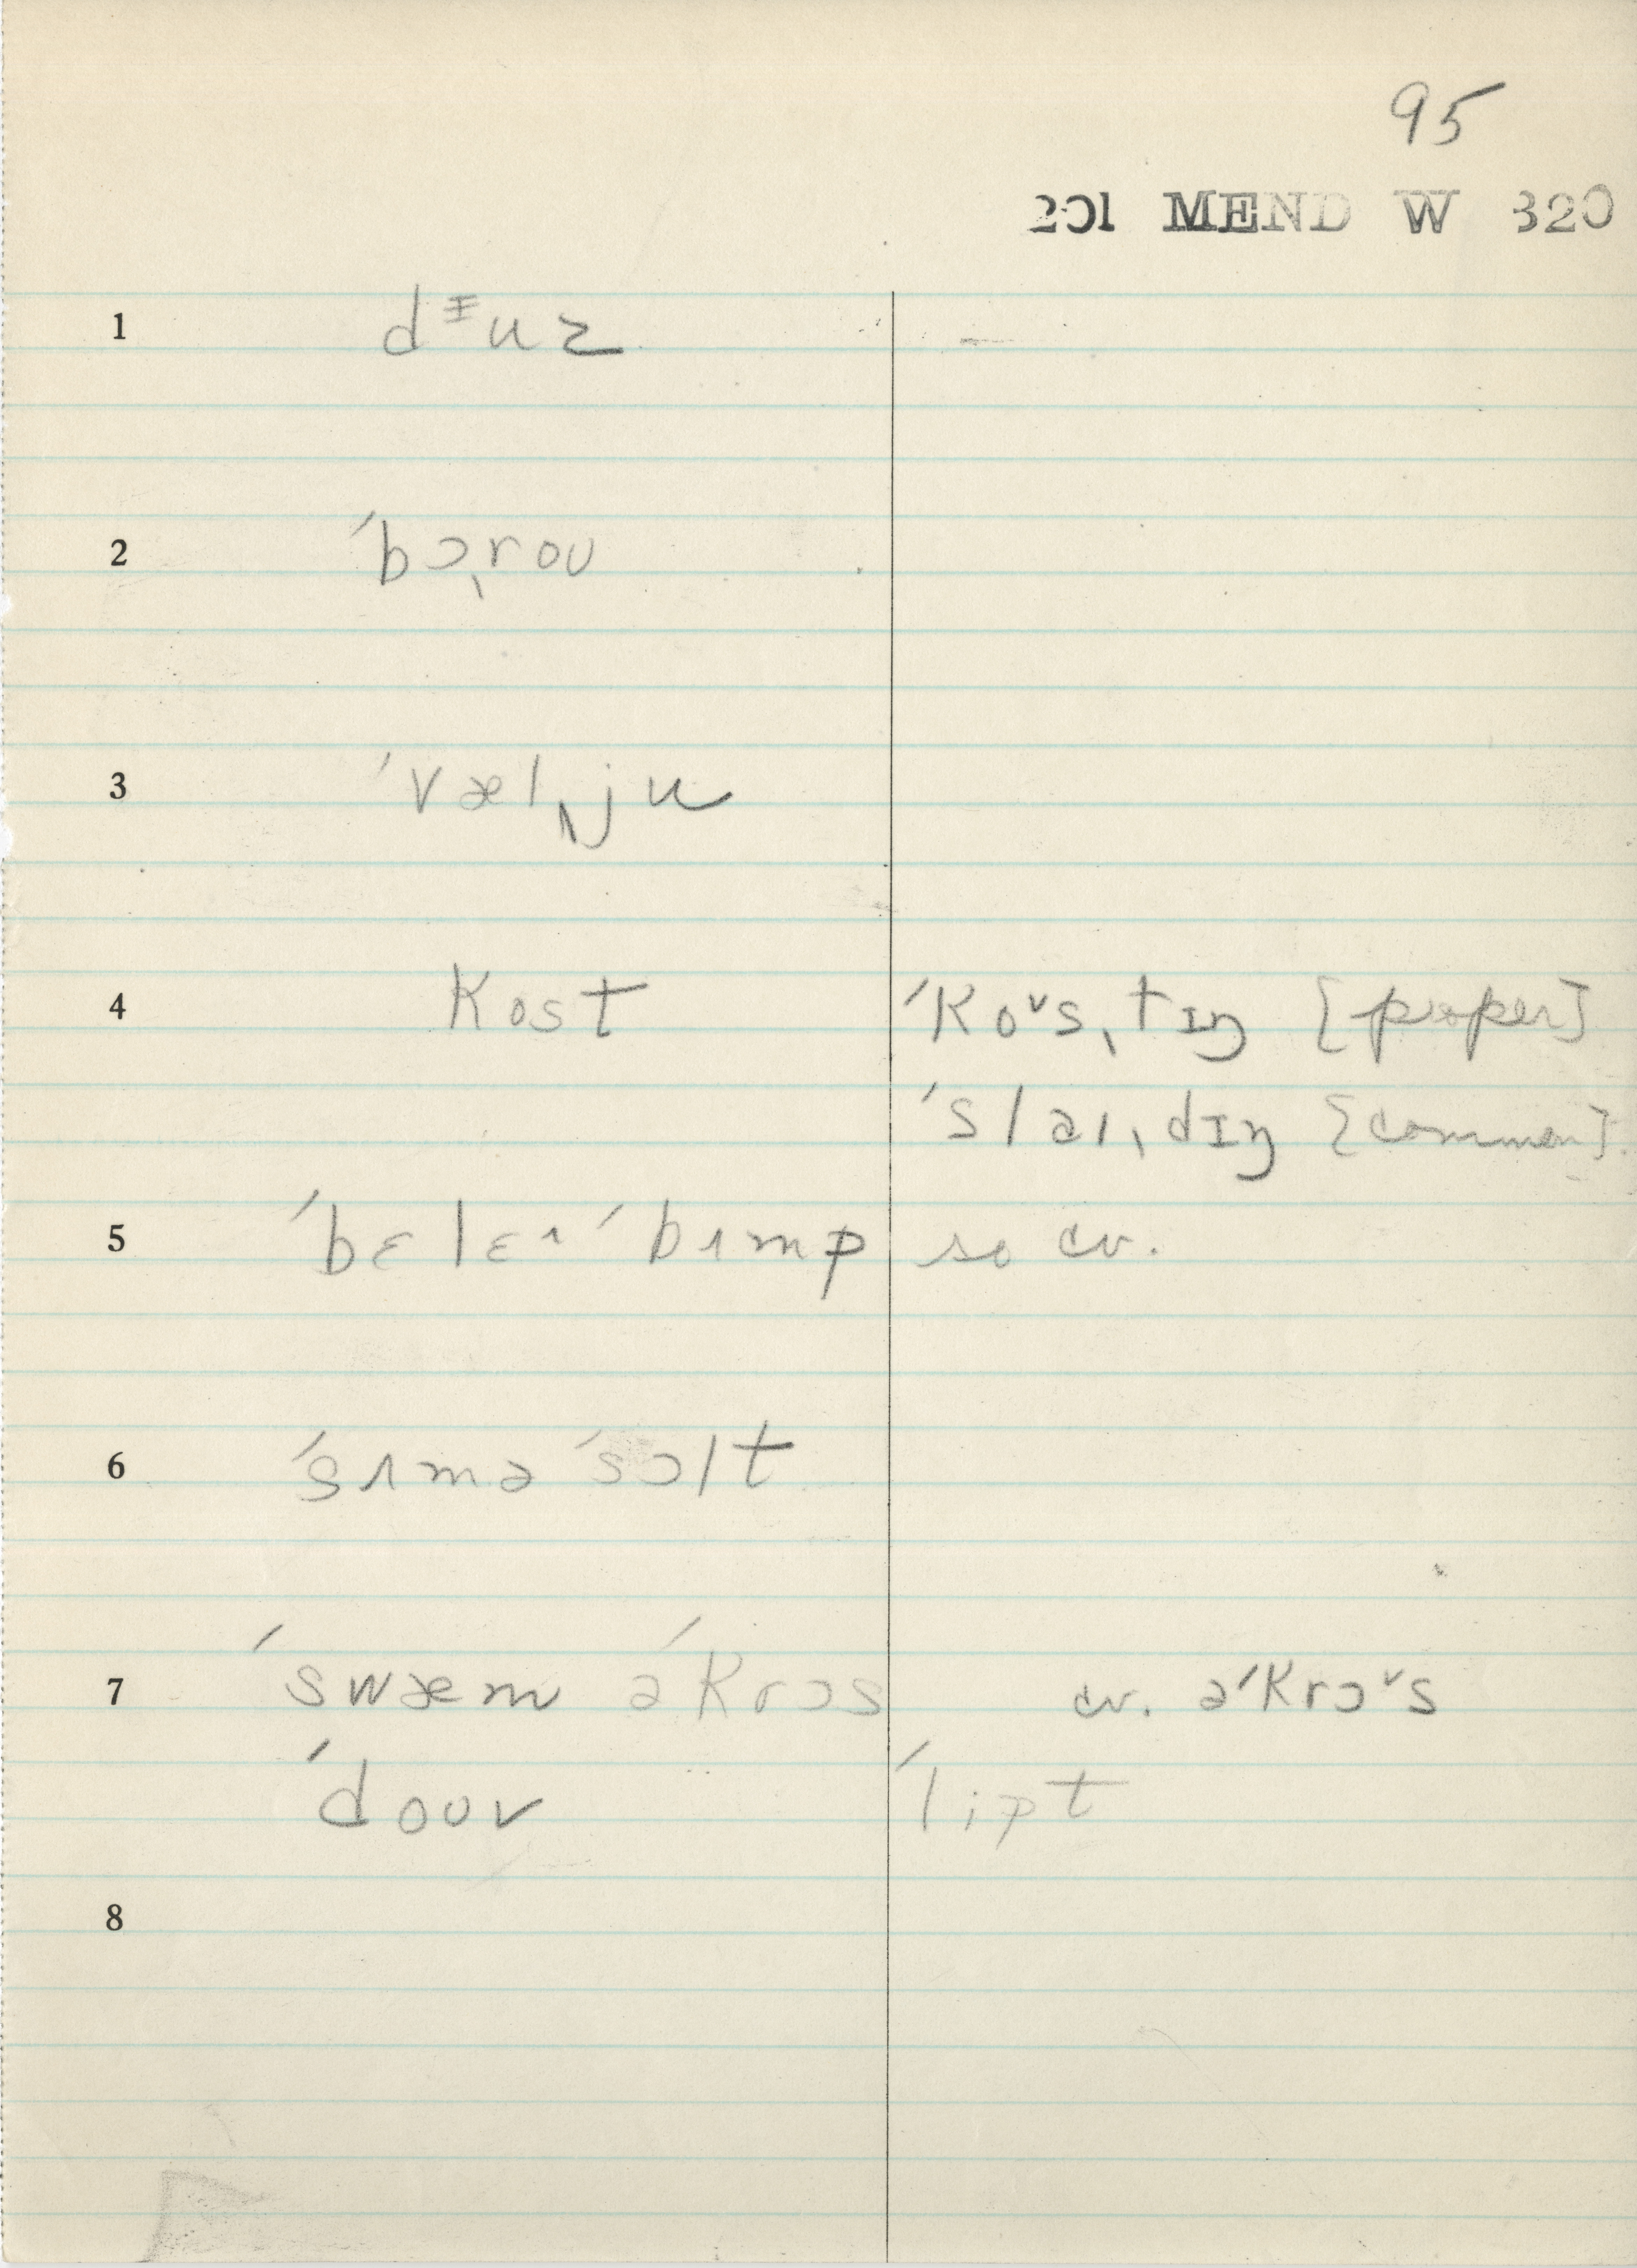 95
201 MEND W 320
1 dᵻuz –
2 ˊbɔˎroʊ
3 ˊvælˎju
4 Kost ˊKo˅sˎtɪŋ [proper]
ˊslaɪˎdɪŋ [common].
5 ˊbɛlɛɪˊbɪmp so cv.
6 ˊsɪməˊsɔlt
7 ˊswæm əˊKrɔs cv. əˊKrɔ˅s
ˊdoʊv ˊlipt
8